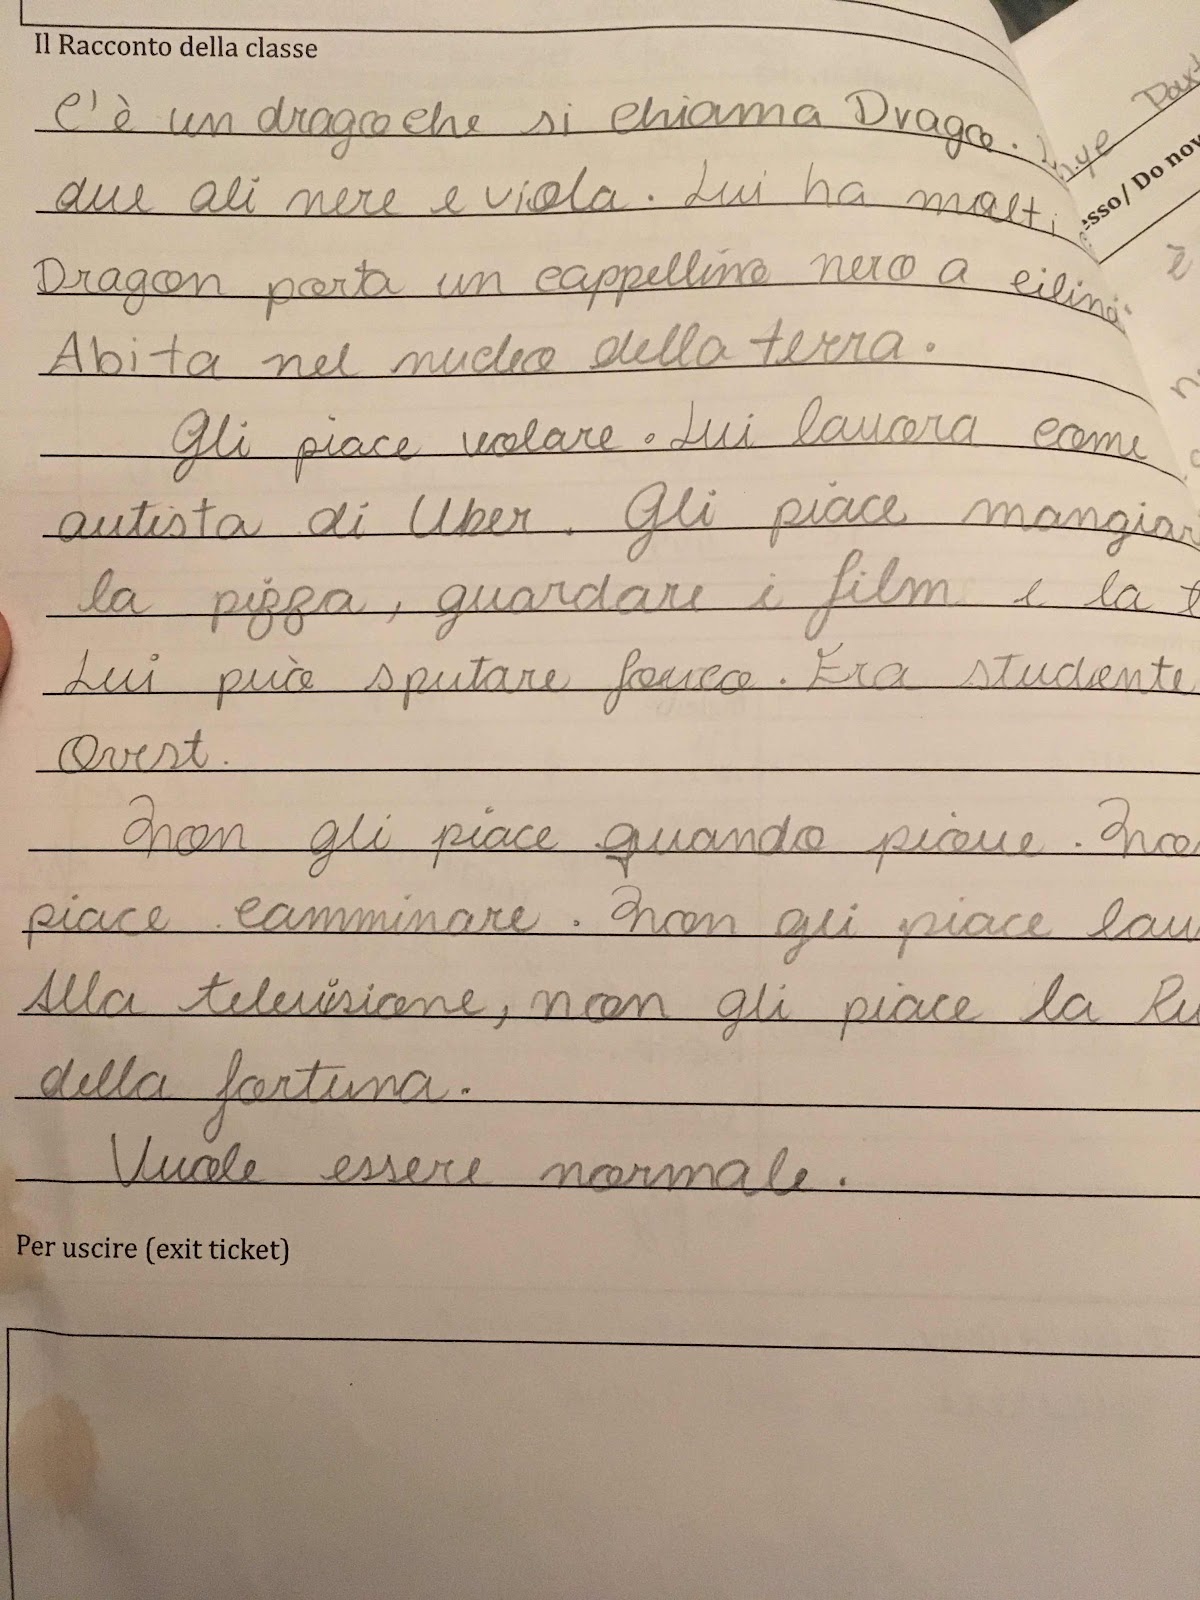 Il Racconto della classe
C'è un drago che si chiama Drago.
due ali nere e viola. Lui ha molti
Dragon porta un cappellino nero a
Abita nel nucleo della terra.
Gli piace volare. Lui lavora come
autista di Uber. Gli piace mangiar
la pizza, guardare i film e la t
Lui può sputare fouco. Era studente
Ovest.
Non gli piace quando piove. Non
piace camminare. Non gli piace lav
Alla televisione, non gli piace la Ru
della fortuna.
Vuole essere normale.
Per uscire (exit ticket)
esso/ Do now